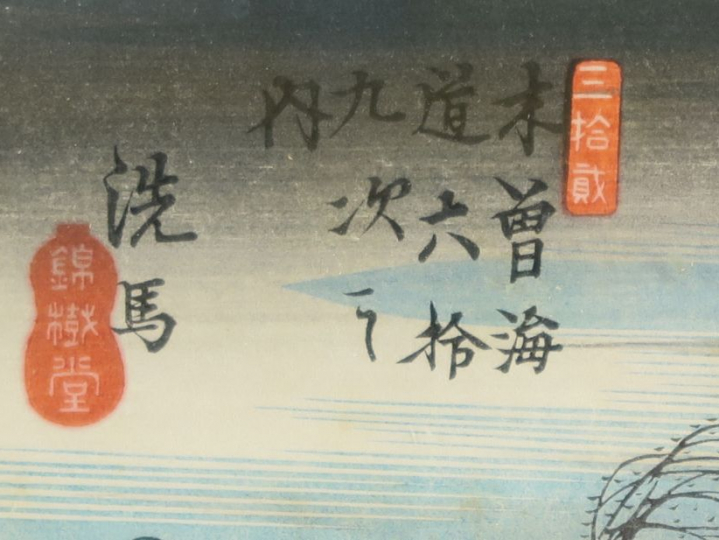 三拾貳
末曽海
道六拾
九次之
内
洗馬
錦樹堂